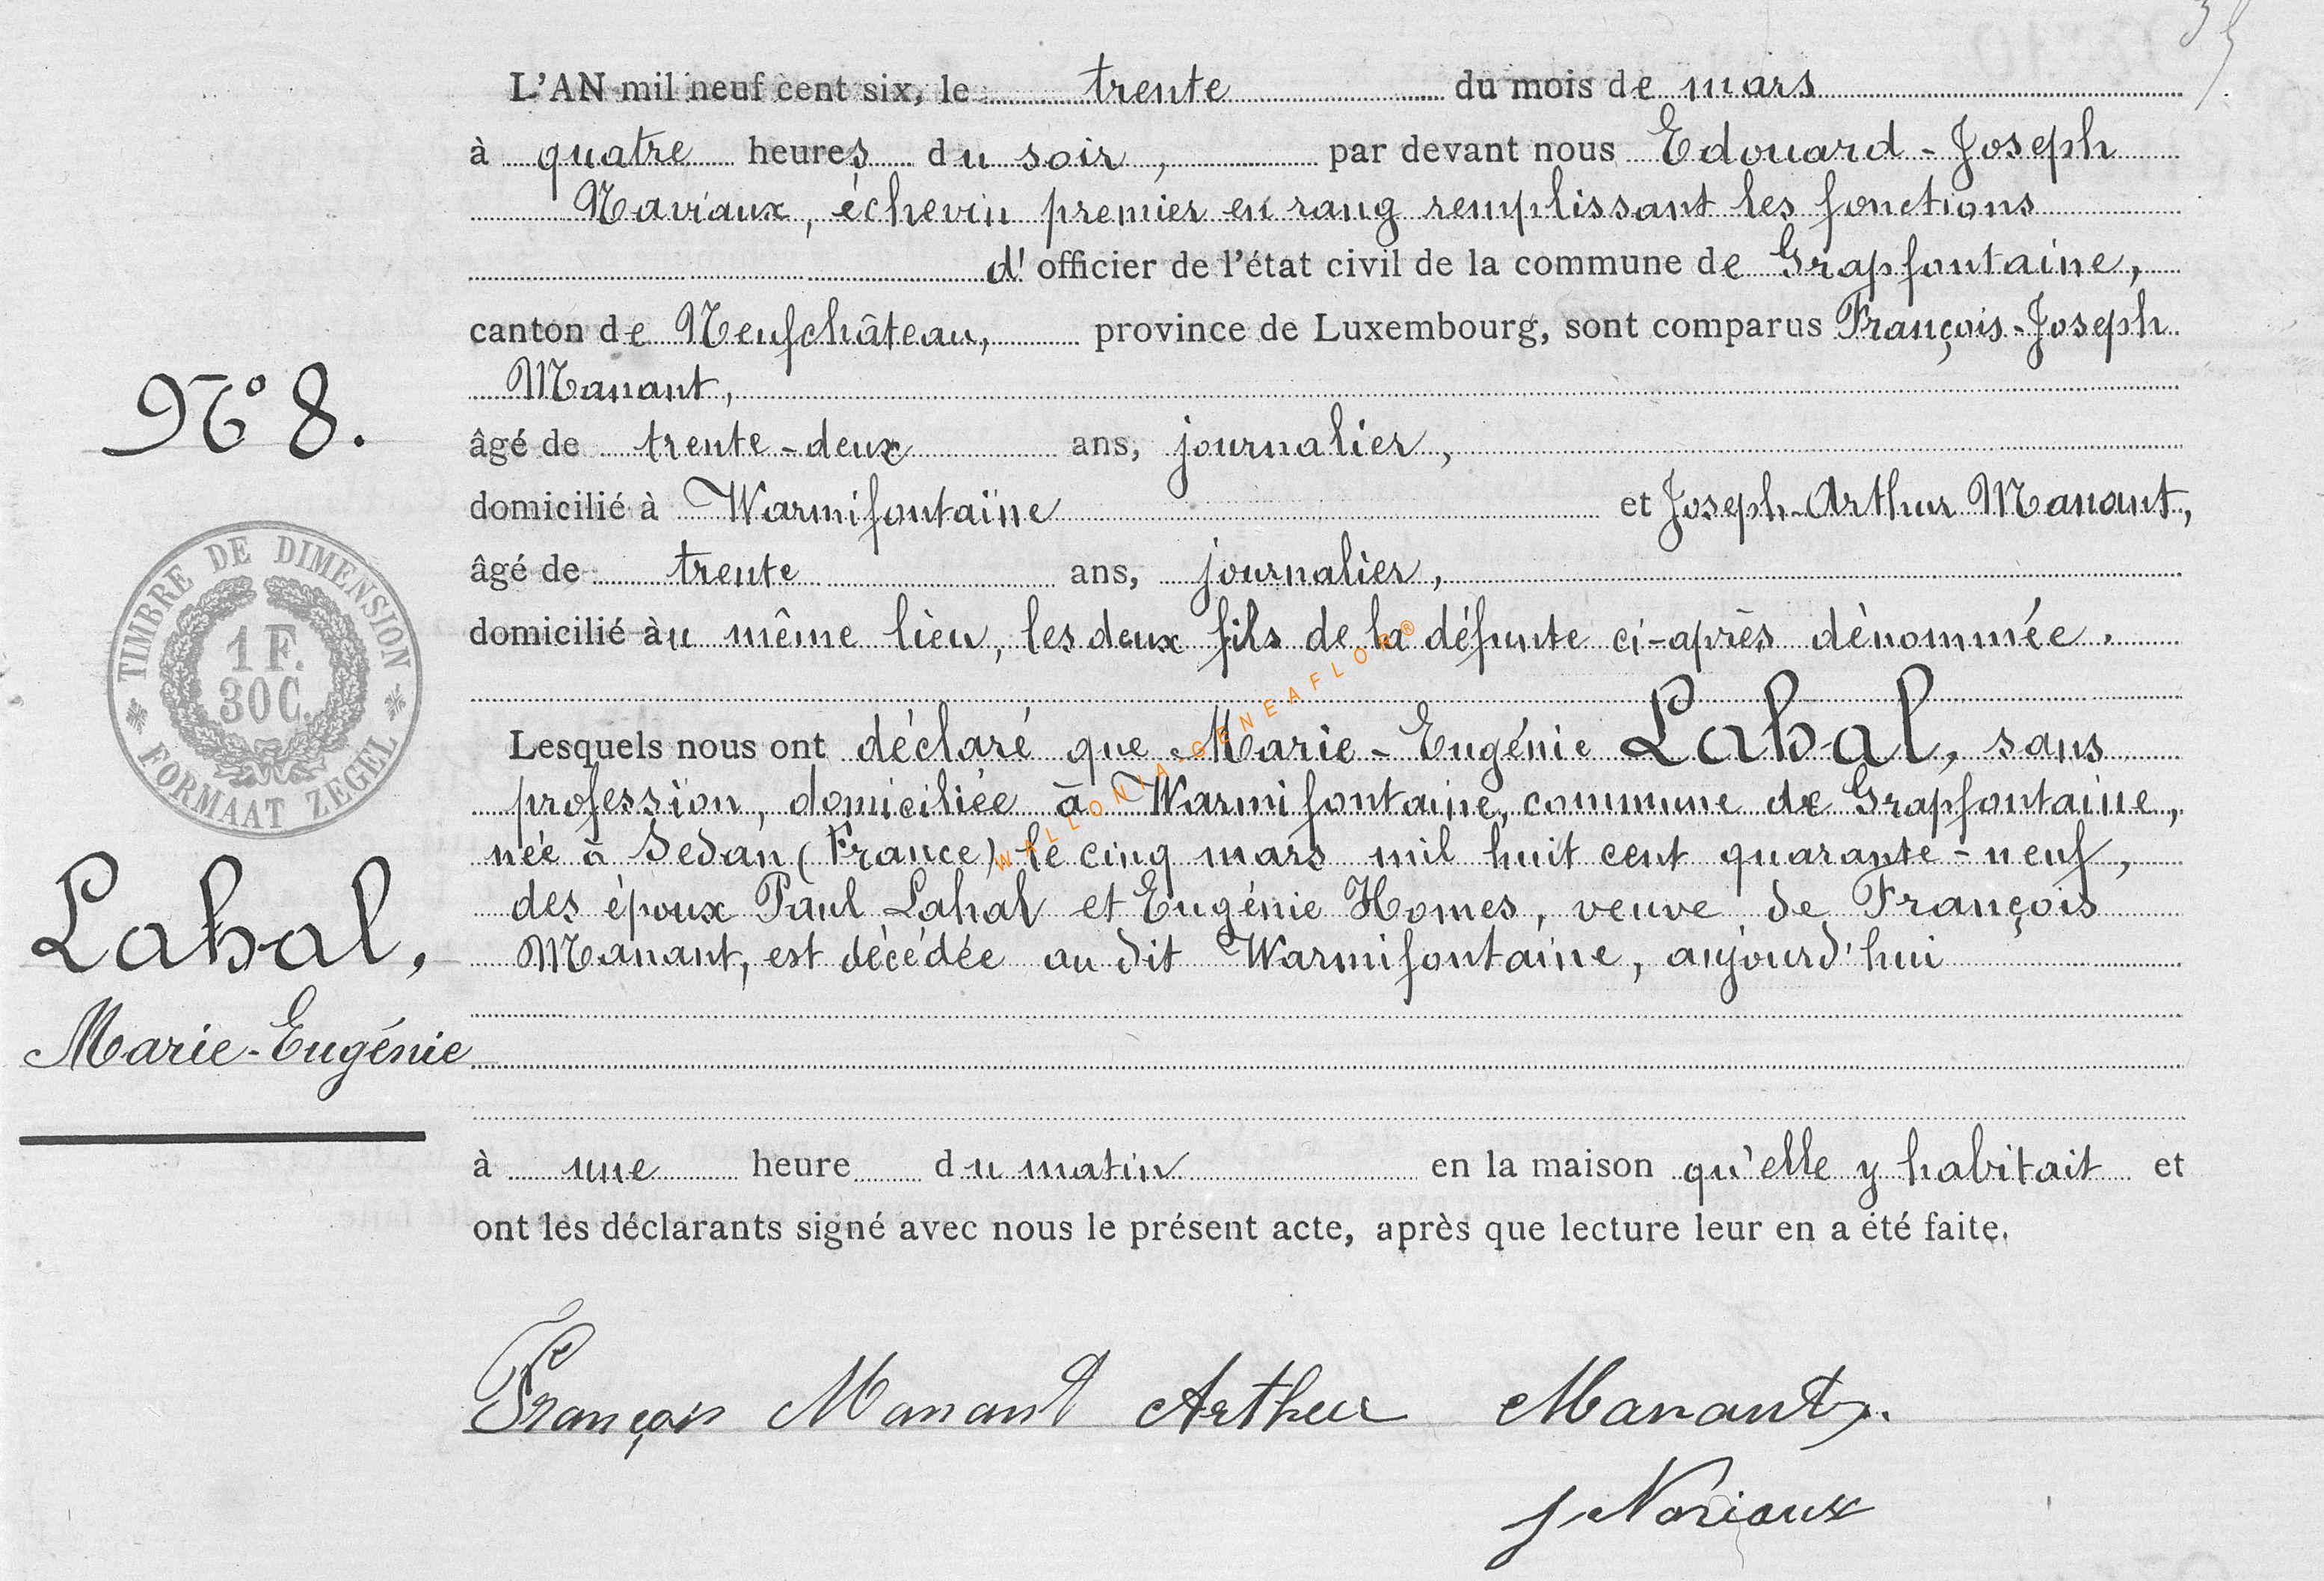 35
L'AN mil neuf cent six, le trente du mois de mars
à quatre heures du soir, par devant nous Edouard-Joseph
Naviaux, échevin premier en rang remplissant les fonctions
d' officier de l'état civil de la commune de Grapfontaine,
canton de Neufchâteau, province de Luxembourg, sont comparus François-Joseph
Manant,
âgé de trente-deux ans, journalier,
domicilié à Warmifontaine et Joseph-Arthur Manant,
âgé de trente ans, journalier,
domicilié àu même lieu, les deux fils de la défunte ci-après dénommée.
Lesquels nous ont déclaré que Marie-Eugénie Lahal, sans
profession, domiciliée à Warmifontaine, commune de Grapfontaine,
née à Sedan (France) le cinq mars mil huit cent quarante-neuf,
des époux Paul Lahal et Eugénie Homes, veuve de François
Manant, est décédée au dit Warmifontaine, aujourd'hui
à une heure du matin en la maison qu'elle y habitait et
ont les déclarants signé avec nous le présent acte, après que lecture leur en a été faite.
François Manant Arthur Manant.
J Naviaux
N° 8.
TIMBRE DE DIMENSION
1 F.
30 C.
FORMAAT ZEGEL
Lahal,
Marie-Eugénie
WALLONIA-GENEAFLOR®